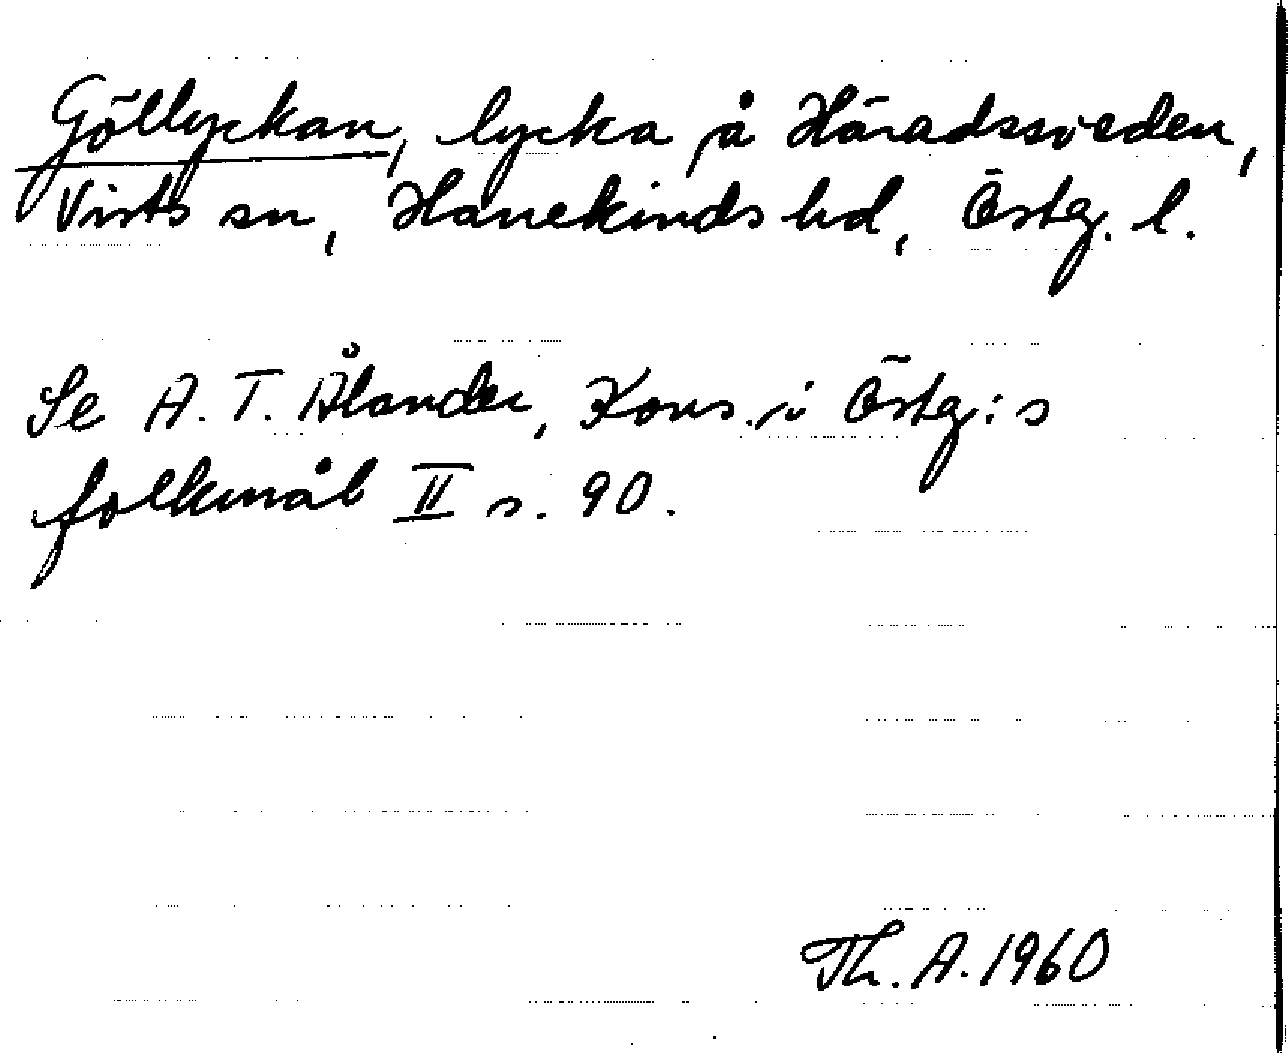 Göllyckan, lycka på Häradssveden,
Vists sn, Hanekinds hd, Östg. l.
Se A. T. Ålander, Kons. i Östg:s
folkmål II s. 90.
Th. A. 1960